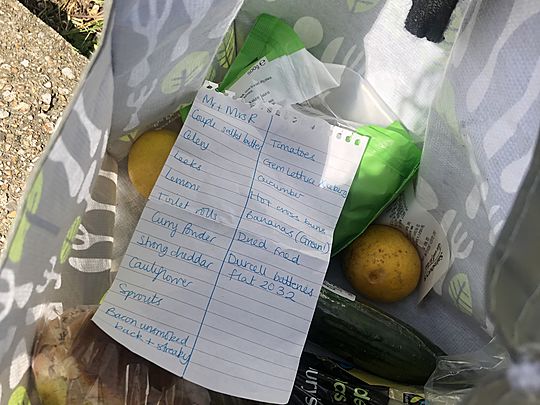 Mr + Mrs R
Celery
Leeks
Lemons
Toilet rolls
Curry Powder
Strong cheddar
Cauliflower
Sprouts
Bacon unsmoked
back + streaky
Tomatoes
Gem lettuce
Cucumber
Hot cross buns
Bananas (Green)
Dried Fried
Durcell batteries
flat 2032